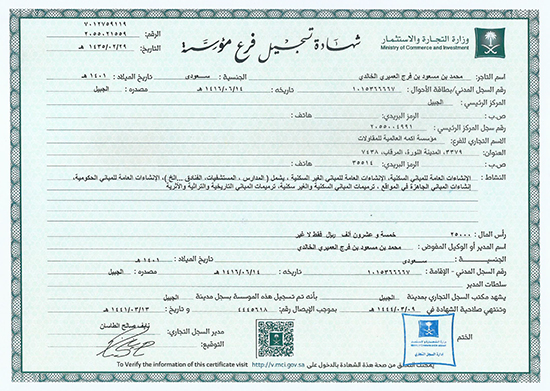 ٧٠١٢٧٥٩١١٩
الرقم: ٢٠٥٥٠٢١٥٥٩
التاريخ: ١٤٣٥/٠٢/٢٩ هـ
شهادة تسجيل فرع مؤسسة
وزارة التجارة والاستثمار
Ministry of Commerce and Investment
اسم التاجر: محمد بن مسعود بن فرج العميري الخالدي الجنسية: سعودى تاريخ الميلاد: ١٤٠١ هـ
رقم السجل المدني/بطاقة الأحوال: ١٠١٥٣٦٦٦٦٧ تاريخه: ١٤١٦/٠٦/١٤ هـ مصدره: الجبيل
المركز الرئيسي: الجبيل
ص.ب: الرمز البريدي: هاتف:
رقم سجل المركز الرئيسي: ٢٠٥٥٠٠٤٩٩١
الاسم التجاري للفرع: مؤسسة اكمه العالمية للمقاولات
العنوان: ٣٣٧٩، المدينة النورة، المرقاب، ٧٤٣٨
ص.ب: الرمز البريدي: ٣٥٥١٤ هاتف:
النشاط: الإنشاءات العامة للمباني السكنية، الإنشاءات العامة للمباني الغير السكنية ، يشمل ( المدارس ، المستشفيات، الفنادق ...الخ)، الإنشاءات العامة للمباني الحكومية،
إنشاءات المباني الجاهزة في المواقع ، ترميمات المباني السكنية والغير سكنية، ترميمات المباني التاريخية والتراثية والأثرية
رأس المال: ٢٥٠٠٠ خمسة و عشرون ألف ريال فقط لا غير
اسم المدير أو الوكيل المفوض: محمد بن مسعود بن فرج العميري الخالدي
الجنسية: سعودى تاريخ الميلاد: ١٤٠١ هـ
رقم السجل المدني - الإقامة: ١٠١٥٣٦٦٦٦٧ تاريخه: ١٤١٦/٠٦/١٤ هـ مصدره: الجبيل
سلطات المدير
يشهد مكتب السجل التجاري بمدينة الجبيل بأنه تم تسجيل هذه الموسسة بسجل مدينة الجبيل
وتنتهي صلاحية الشهادة في ١٤٤٤/٠٣/٠٩ هـ بموجب الإيصال رقم: ٤٤٤٥٦١٨ و تاريخ: ١٤٤١/٠٣/١٣ هـ
الختم
مدير السجل التجاري: نايف صالح الطاسان
التوقيع:
إدارة السجل التجاري
يمكنك التحقق من صحة هذه الشهادة بالدخول على To Verify the information of this certificate visit http://v.mci.gov.sa